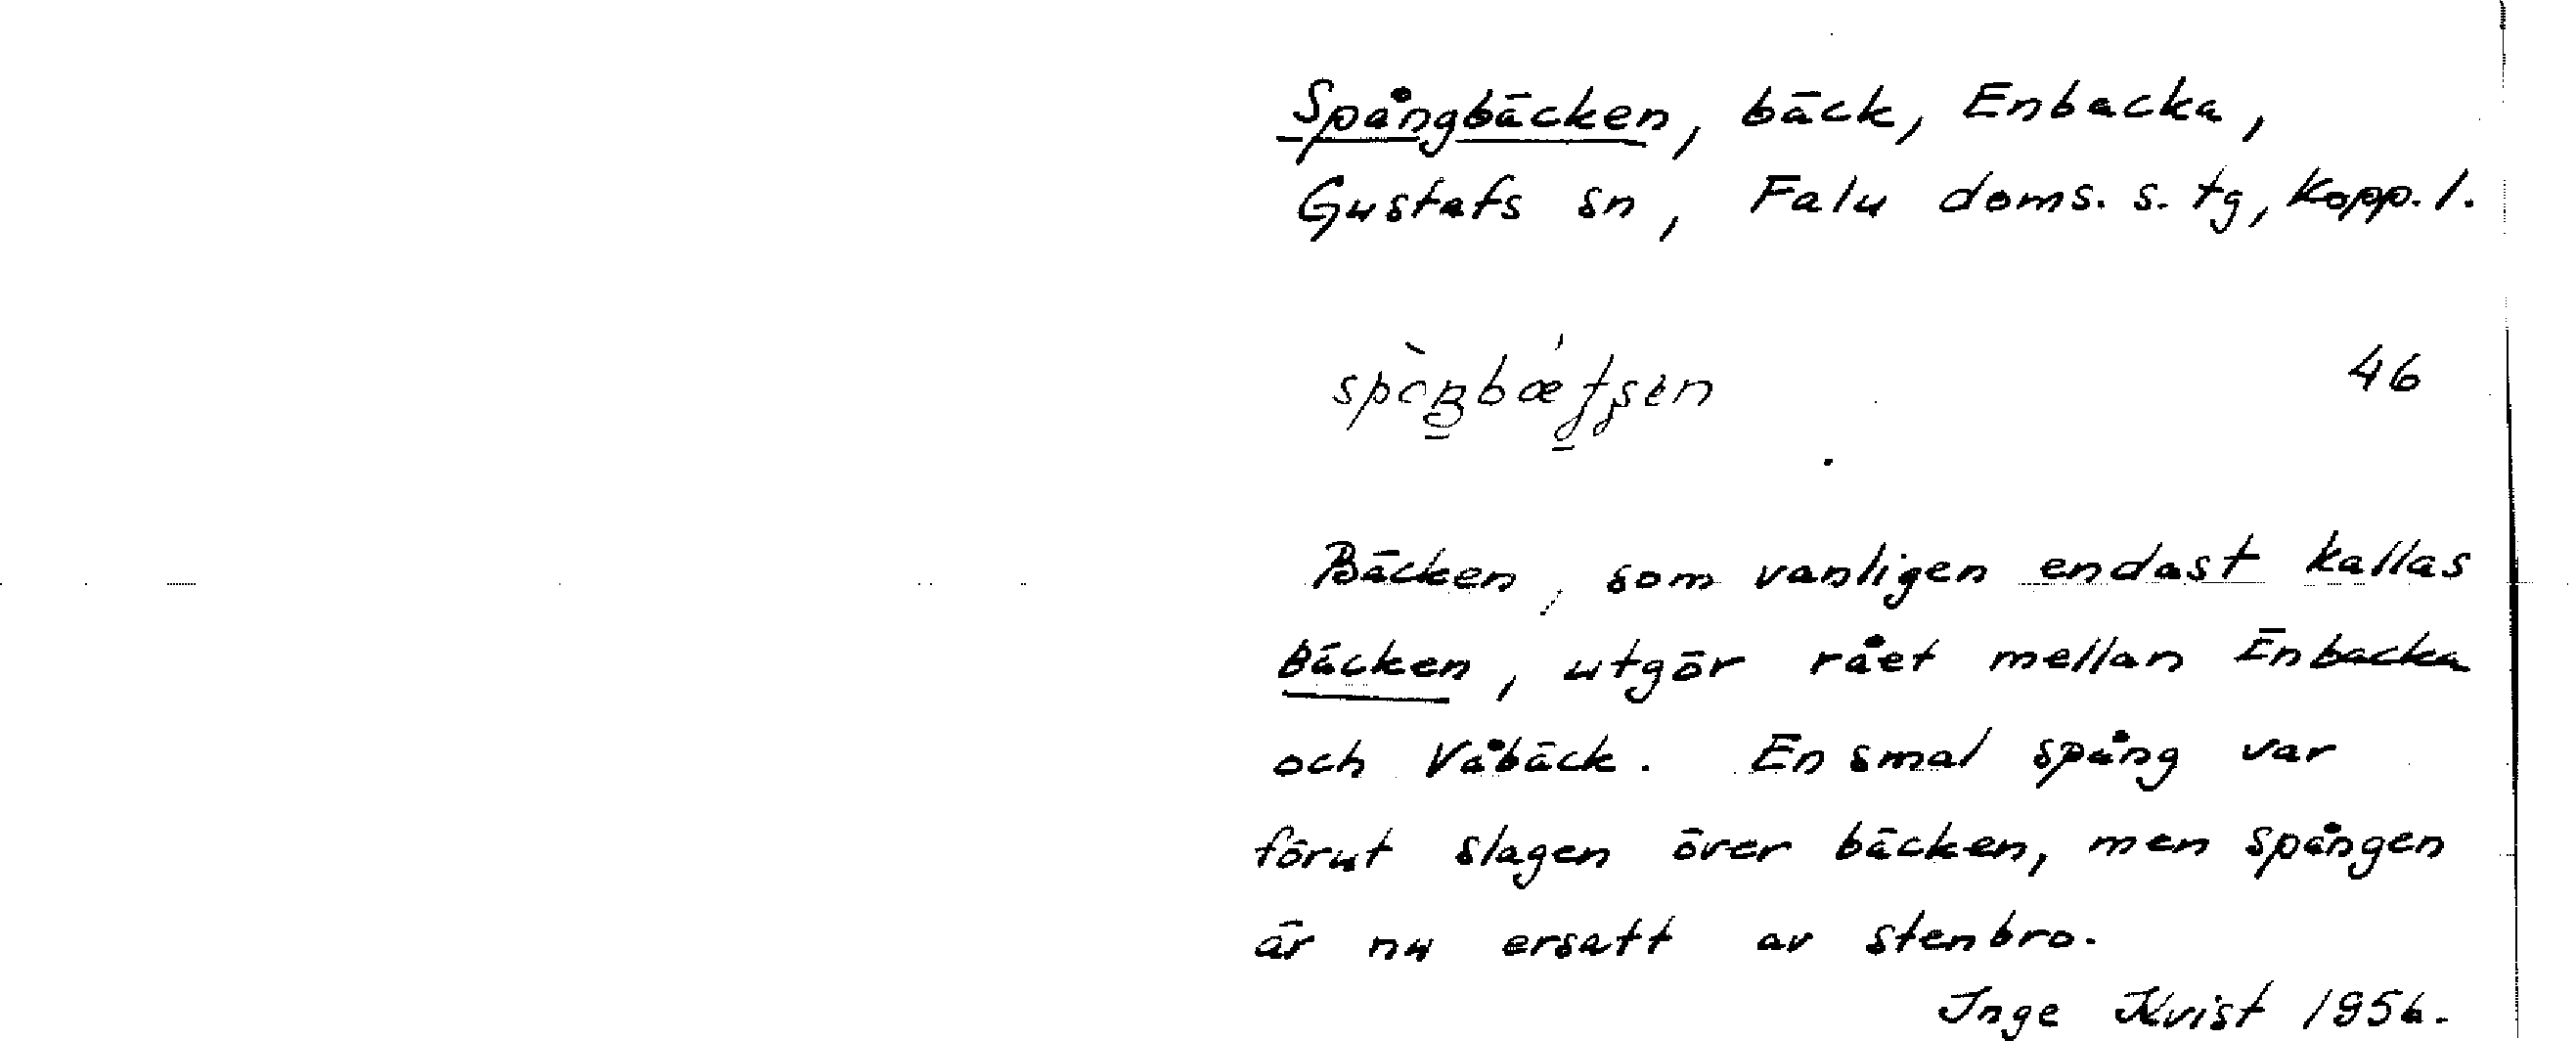 Spångbäcken, bäck, Enbacka,
Gustafs sn, Falu doms. s. tg, Kopp. l.
46
Bäcken, som vanligen endast kallas
bäcken, utgör rået mellan Enbacka
och Våbäck. En smal spång var
förut slagen över bäcken, men spången
är nu ersatt av stenbro.
Inge Kvist